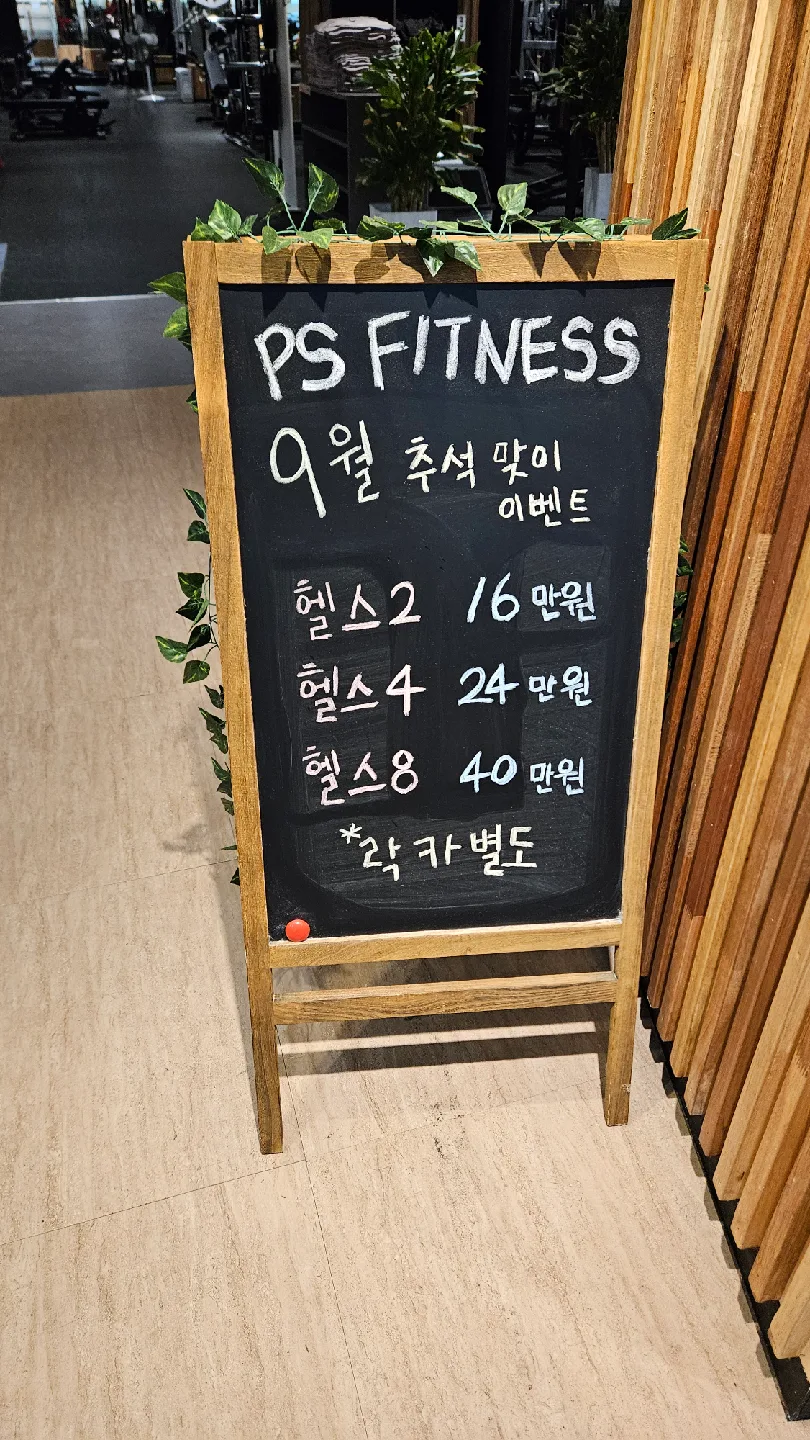 PS FITNESS
9월 추석 맞이
이벤트
헬스2 16만원
헬스4 24만원
헬스8 40만원
*락카 별도